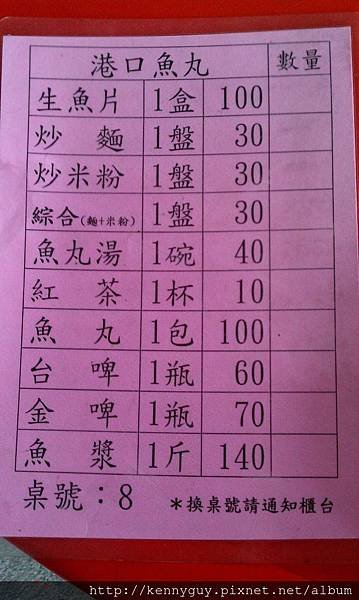 港口魚丸 數量
生魚片 1盒 100
炒麵 1盤 30
炒米粉 1盤 30
綜合(麵+米粉) 1盤 30
魚丸湯 1碗 40
紅茶 1杯 10
魚丸 1包 100
台啤 1瓶 60
金啤 1瓶 70
魚漿 1斤 140
桌號：8 *換桌號請通知櫃台
http://kennyguy.pixnet.net/album